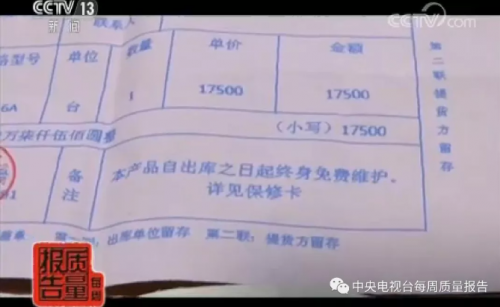 CCTV 13
新闻
央视网
联系人
格型号 单位 数量 单价 金额
6A 台 1 17500 17500
万柒仟伍佰圆整 (小写)17500
备注
本产品自出库之日起终身免费维护。
详见保修卡
出库单位留存 第二联:提货方留存
第二联提货方留存
每周
质量报告
中央电视台每周质量报告